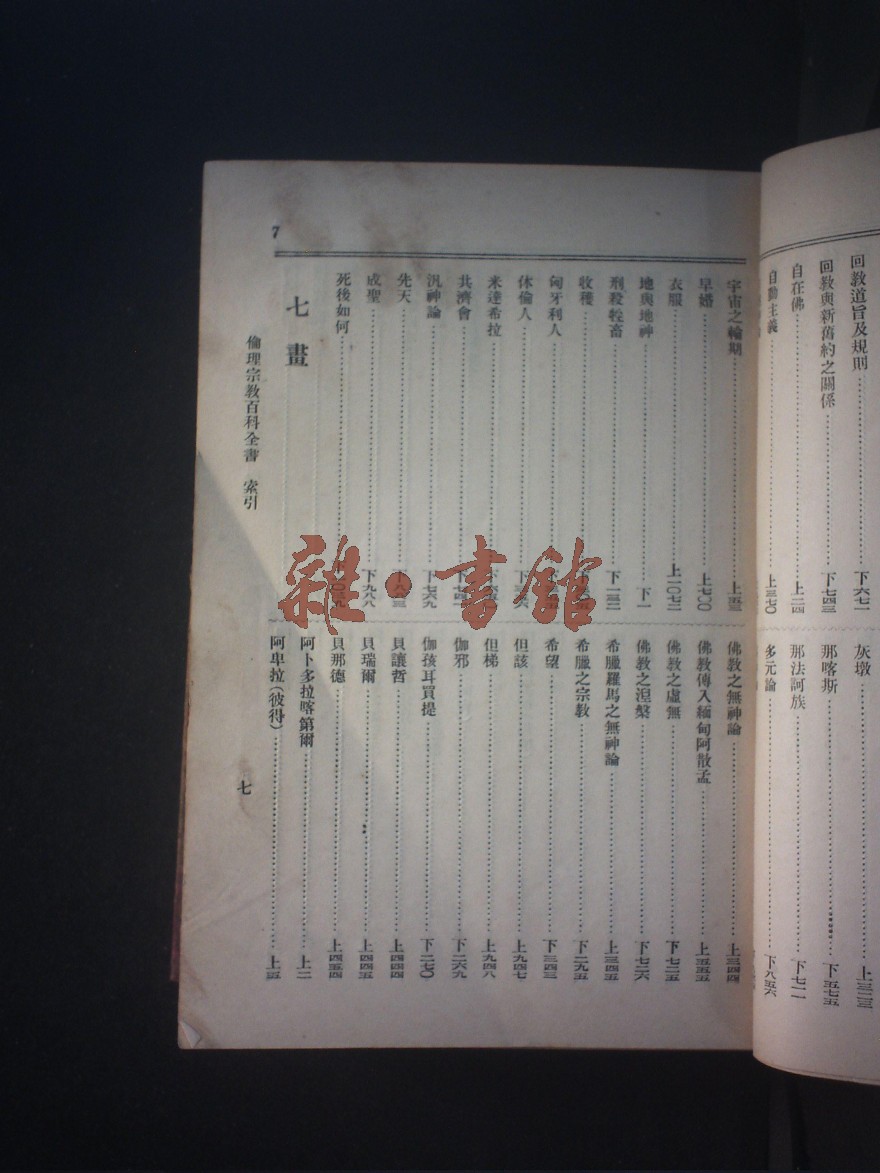 回教道旨及規則……下六七一
回教與新舊約之關係……下七四三
自在佛……上二四
自動主義……上三七〇
灰墩……上三二三
那喀斯……下五七五
那法訶族……下七一一
多元論……下八五六
7
宇宙之輪期……上五三
早婚……上七〇
衣服……上一〇七二
地與地神……下一
刑殺牲畜……下一三二
收穫
匈牙利人
休倫人
米達希拉
共濟會
汎神論……下七六九
先天……下八八三
成聖……下九八八
死後如何
七畫
佛教之無神論……上三四四
佛教傳入緬甸阿散孟……上五五五
佛教之虛無……下七二五
佛教之涅槃……下七二六
希臘羅馬之無神論……上三四五
希臘之宗教……下二九五
希望……下三四三
但該……上九四七
但梯……上九四八
伽邪……下二六九
伽孩耳買提……下二七〇
貝讓哲……上四四四
貝瑞爾……上四四五
貝那德……上四五四
阿卜多拉喀第爾……上二
阿卑拉(彼得)……上五
倫理宗教百科全書 索引
七
雜·書館